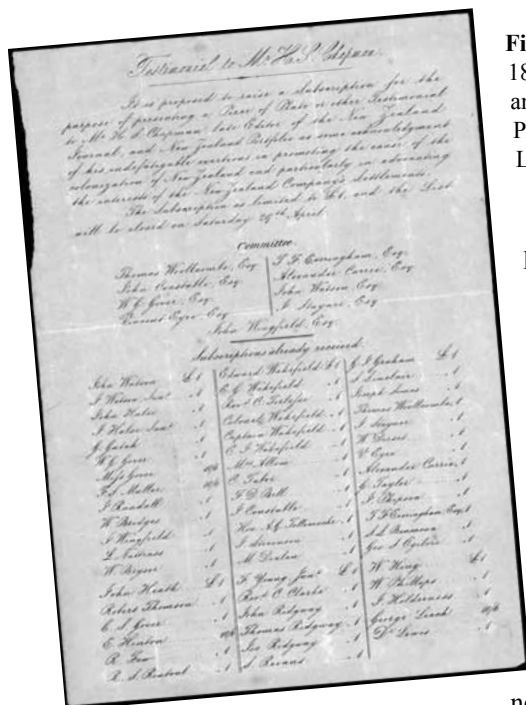 Testimonial to Mr H. S. Chapman.
It is proposed to raise a Subscription for the
purpose of presenting a Piece of Plate or other Testimonial
to Mr H. S. Chapman, late Editor of the New Zealand
Journal, and New Zealand Portfolio as some acknowledgment
of his indefatigable exertions in promoting the cause of the
colonization of New Zealand and particularly in advocating
the interests of the New Zealand Company's Settlements.
The Subscription is limited to £1, and the List
will be closed on Saturday 29th April.
Committee.
Thomas Woollcombe, Esq
John Constable, Esq
W. G. Gover, Esq.
Vincent Eyre, Esq
T. F. Everingham, Esq.
Alexander Currie, Esq
John Watson, Esq
J. Stayner, Esq
John Wingfield, Esq.
Subscriptions already received.
John Watson £1
J. Watson Junr 1
John Hater 1
J. Hater Junr 1
W. G. Gover 1
Miss Gover 10/6
J. Randall 1
W. Bridges 1
J. Wingfield 1
W. Bryan 1
John Heath £1
Robert Thomson 1
C. S. Gover 1
E. Heaton 10/6
R. Fox 1
Edward Wakefield £1
E. G. Wakefield 1
Colonel Wakefield 1
Captain Wakefield 1
E. J. Wakefield 1
Mr Allom 1
C. Tabor 1
F. D. Bell 1
J. Constable 1
Hon. A. G. Tollemache 1
M. Denton 1
F. Young, Junr £1
Revd C. Clarke 1
John Ridgway 1
Thomas Ridgway 1
Jos Ridgway 1
S. Revans 1
G. F. Graham £1
S. Sinclair 1
Joseph Somes 1
Thomas Woollcombe 1
J. Stayner 1
W. Dorset 1
V. Eyre 1
Alexander Currie 1
G. Taylor 1
J. Thopson 1
T. F. Everingham Esq 1
Geo. S. Ogilvie 1
W. King 1
W. Phillips 1
J. Holderness 1
George Leach 10/6
Dr Lewis 1
Fi
18
P
L